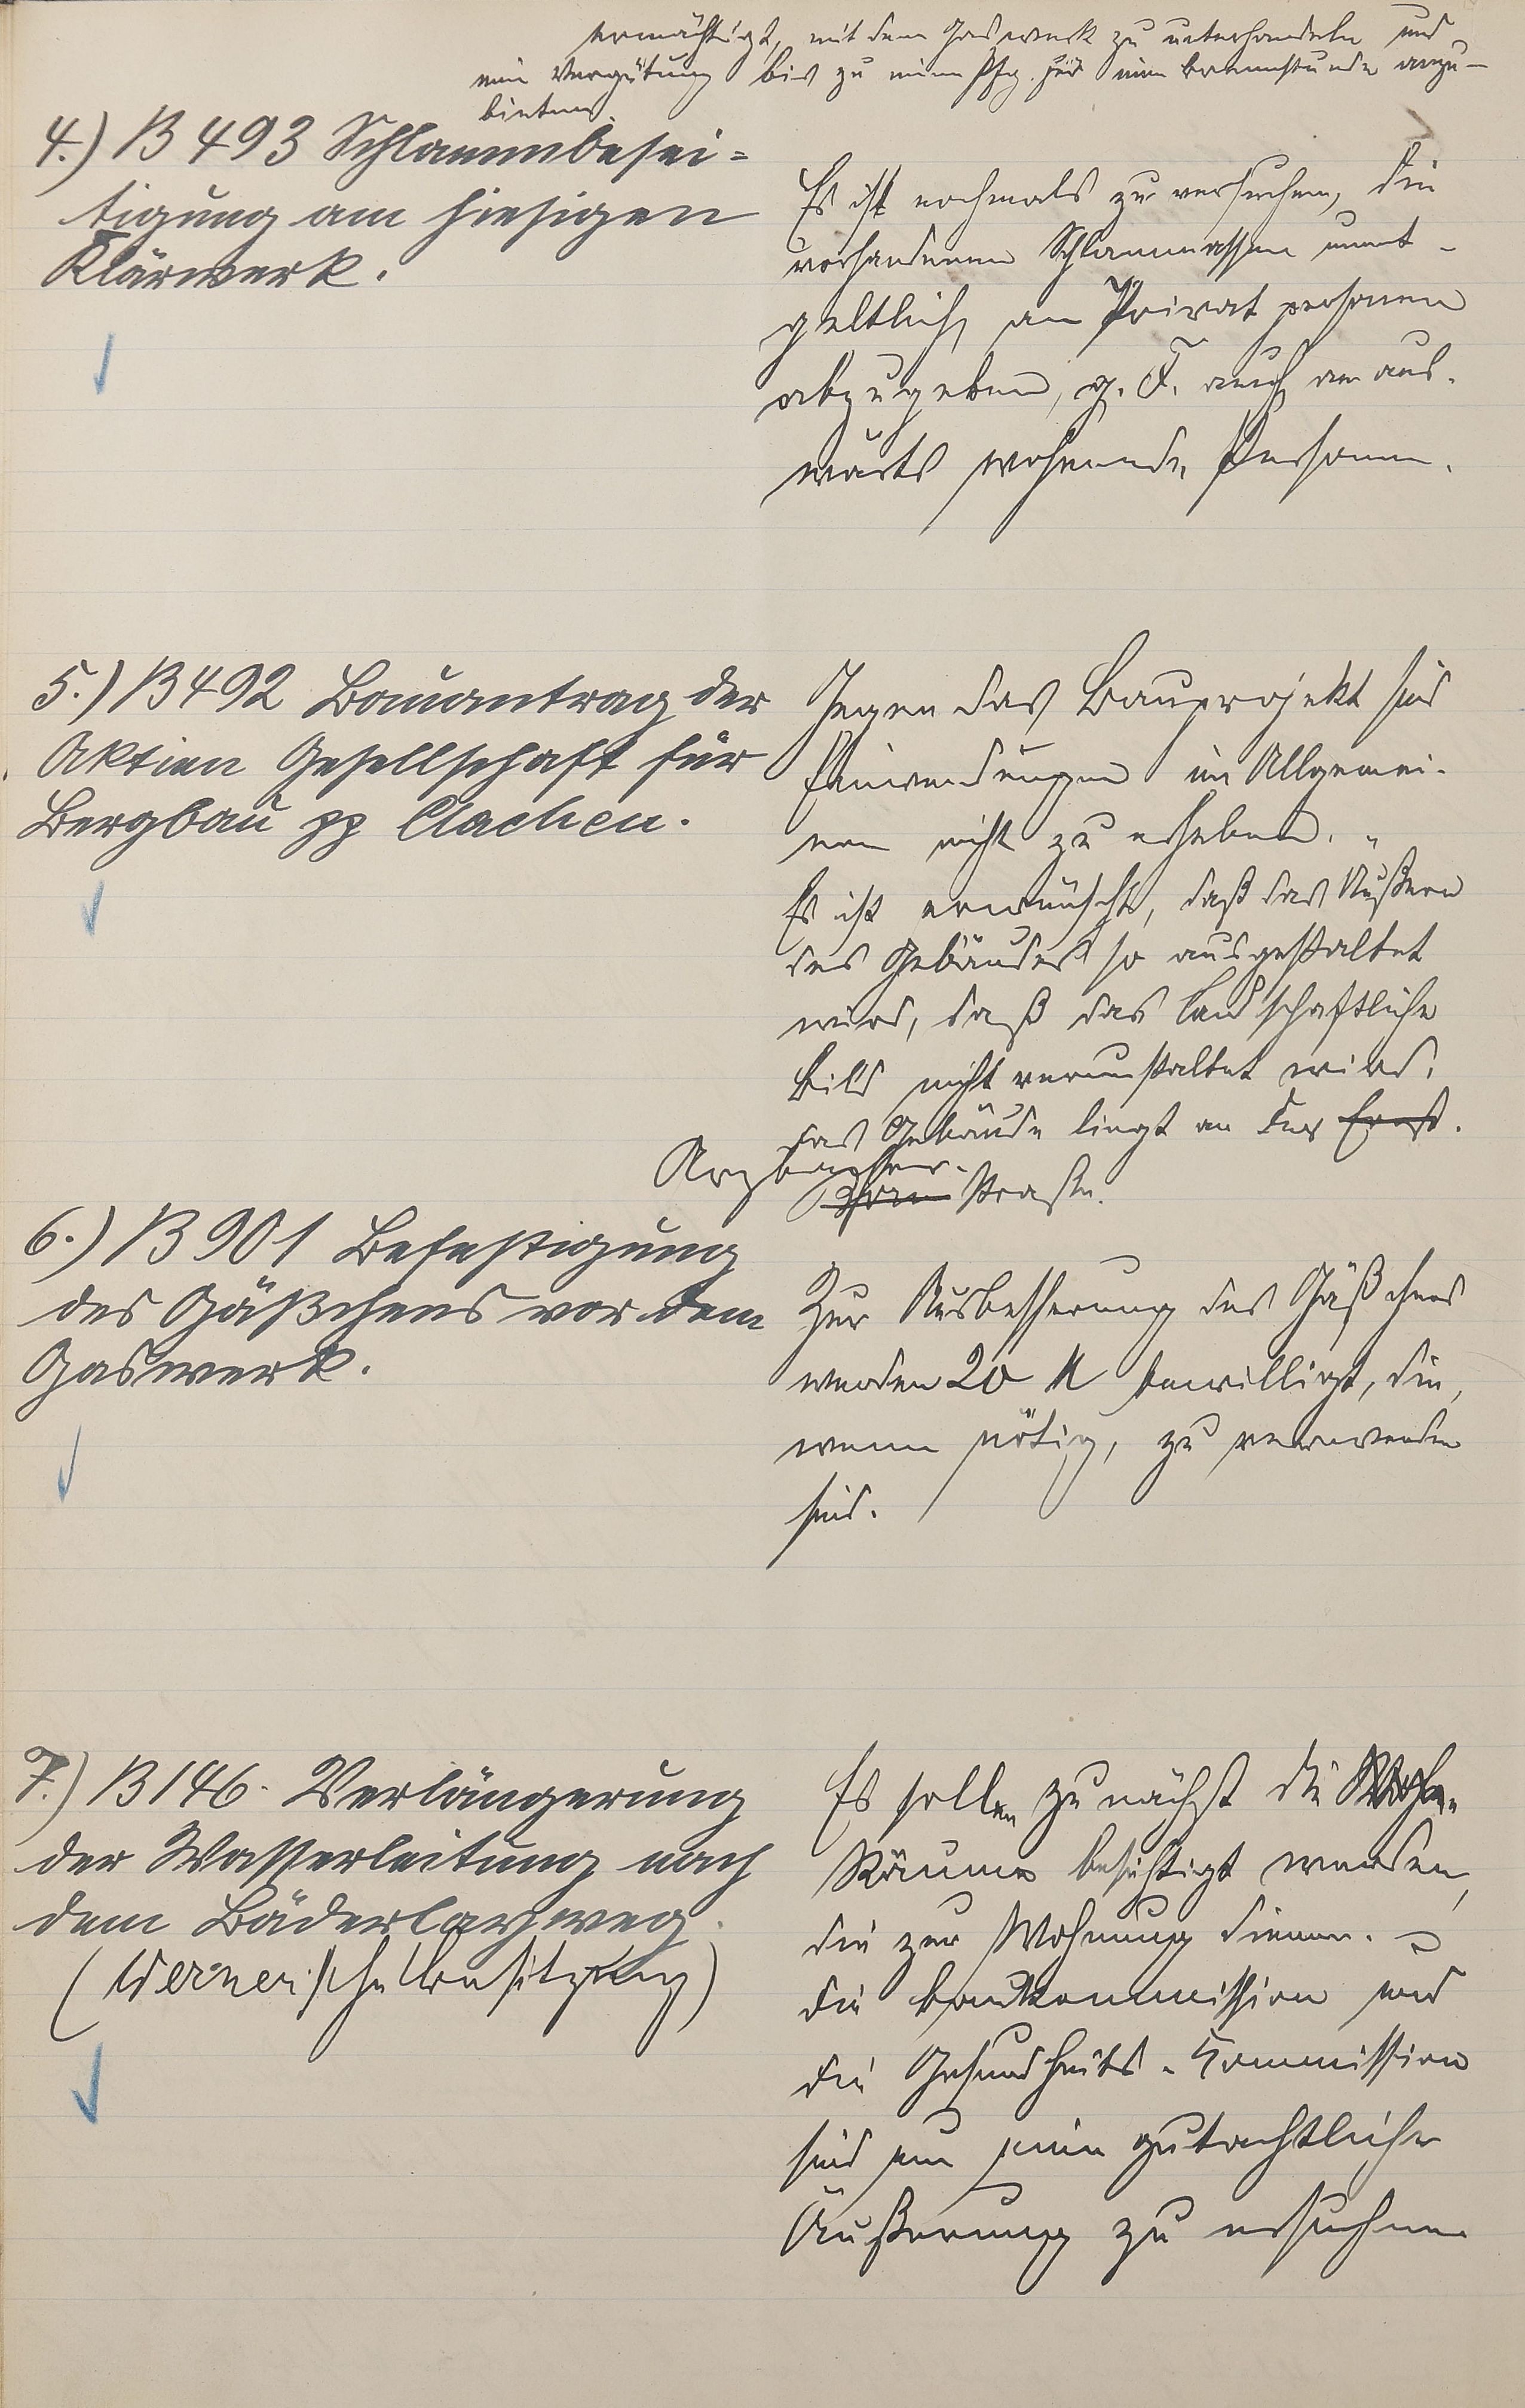 ermächtigt, mit dem Gaswerk zu unterhandeln und
eine Vergütung bis zu einem Pfg. für eine Brennstunde anzu-
bieten.
4.) B 493 Schlammbesei=
tigung am hiesigen
Klärwerk.
Es ist nochmals zu versuchen, die
vorhandenen Schlammassen unent-
geltlich an Privatpersonen
abzugeben, g. F. auch an aus-
wärts wohnende Personen.
5.) B 492 Bauantrag der
Aktien Gesellschaft für
Bergbau pp Aachen.
Gegen das Bauprojekt sind
Einwendungen im Allgemei-
nen nicht zu erheben.
Es ist erwünscht, daß das Äußere
des Gebäudes so ausgestaltet
wird, daß das landschaftliche
Bild nicht verunstaltet wird.
Das Gebäude liegt an der
Arzbacher-
Straße.
6.) B 901 Befestigung
des Gäßchens vor dem
Gaswerk.
Zur Ausbesserung des Gäßchens
werden 20 M bewilligt, die,
wenn nötig, zu verwenden
sind.
7.) B 146. Verlängerung
der Wasserleitung nach
dem Bäderlayweg.
(Werner'sche Besitzung)
Es sollen zunächst die
Räume besichtigt werden,
die zur Wohnung dienen.
Die Baukommission und
die Gesundheits-Kommission
sind um eine gutachtliche
Äußerung zu ersuchen